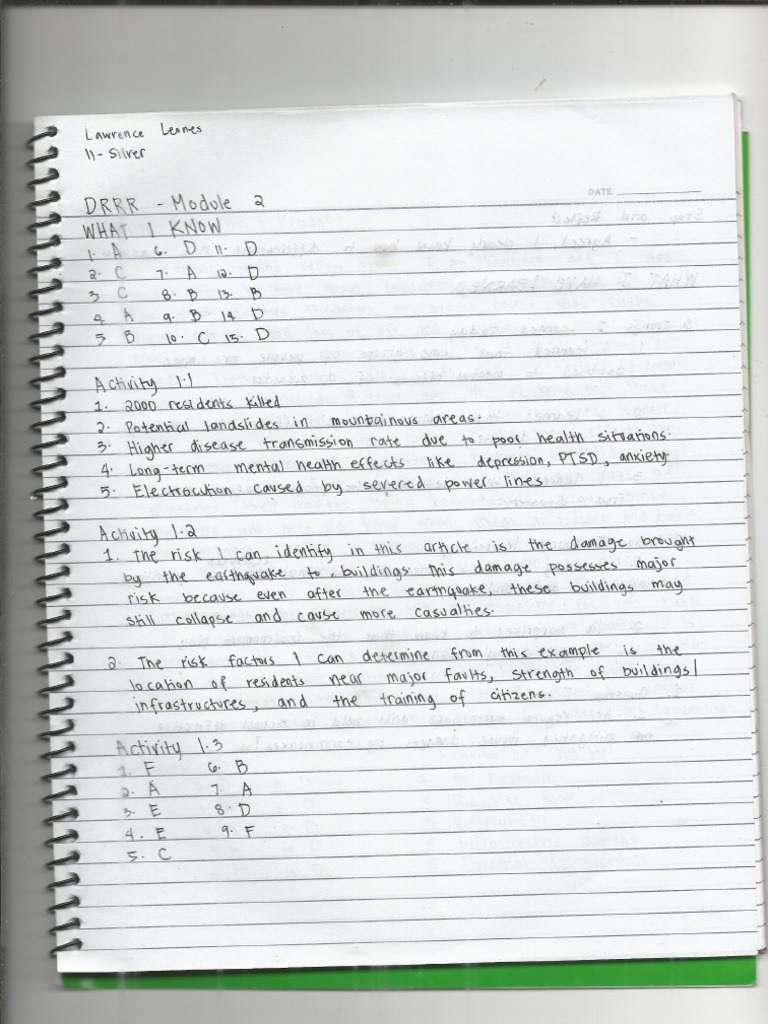 Lawrence Leones
11- Silver
DATE:
DRRR - Module 2
WHAT I KNOW
1. A 6. D 11. D
2. C 7. A 12. D
3 C 8. B 13. B
4 A 9. B 14. D
5 B 10. C 15. D
Activity 1.1
1. 2000 residents killed
2. Potential landslides in mountainous areas.
3. Higher disease transmission rate due to poor health sitations.
4. Long-term mental health effects like depression, PTSD, anxiety
5. Electrocution caused by severed power lines
Activity 1.2
1. The risk I can identify in this article is the damage brought
by the earthquake to buildings. This damage possesses major
risk because even after the earthquake, these buildings may
still collapse and cause more casualties.
2. The risk factors I can determine from this example is the
location of residents near major faults, strength of buildings/
infrastructures, and the training of citizens.
Activity 1.3
1. F 6. B
2. A 7. A
3. E 8. D
4. E 9. F
5. C